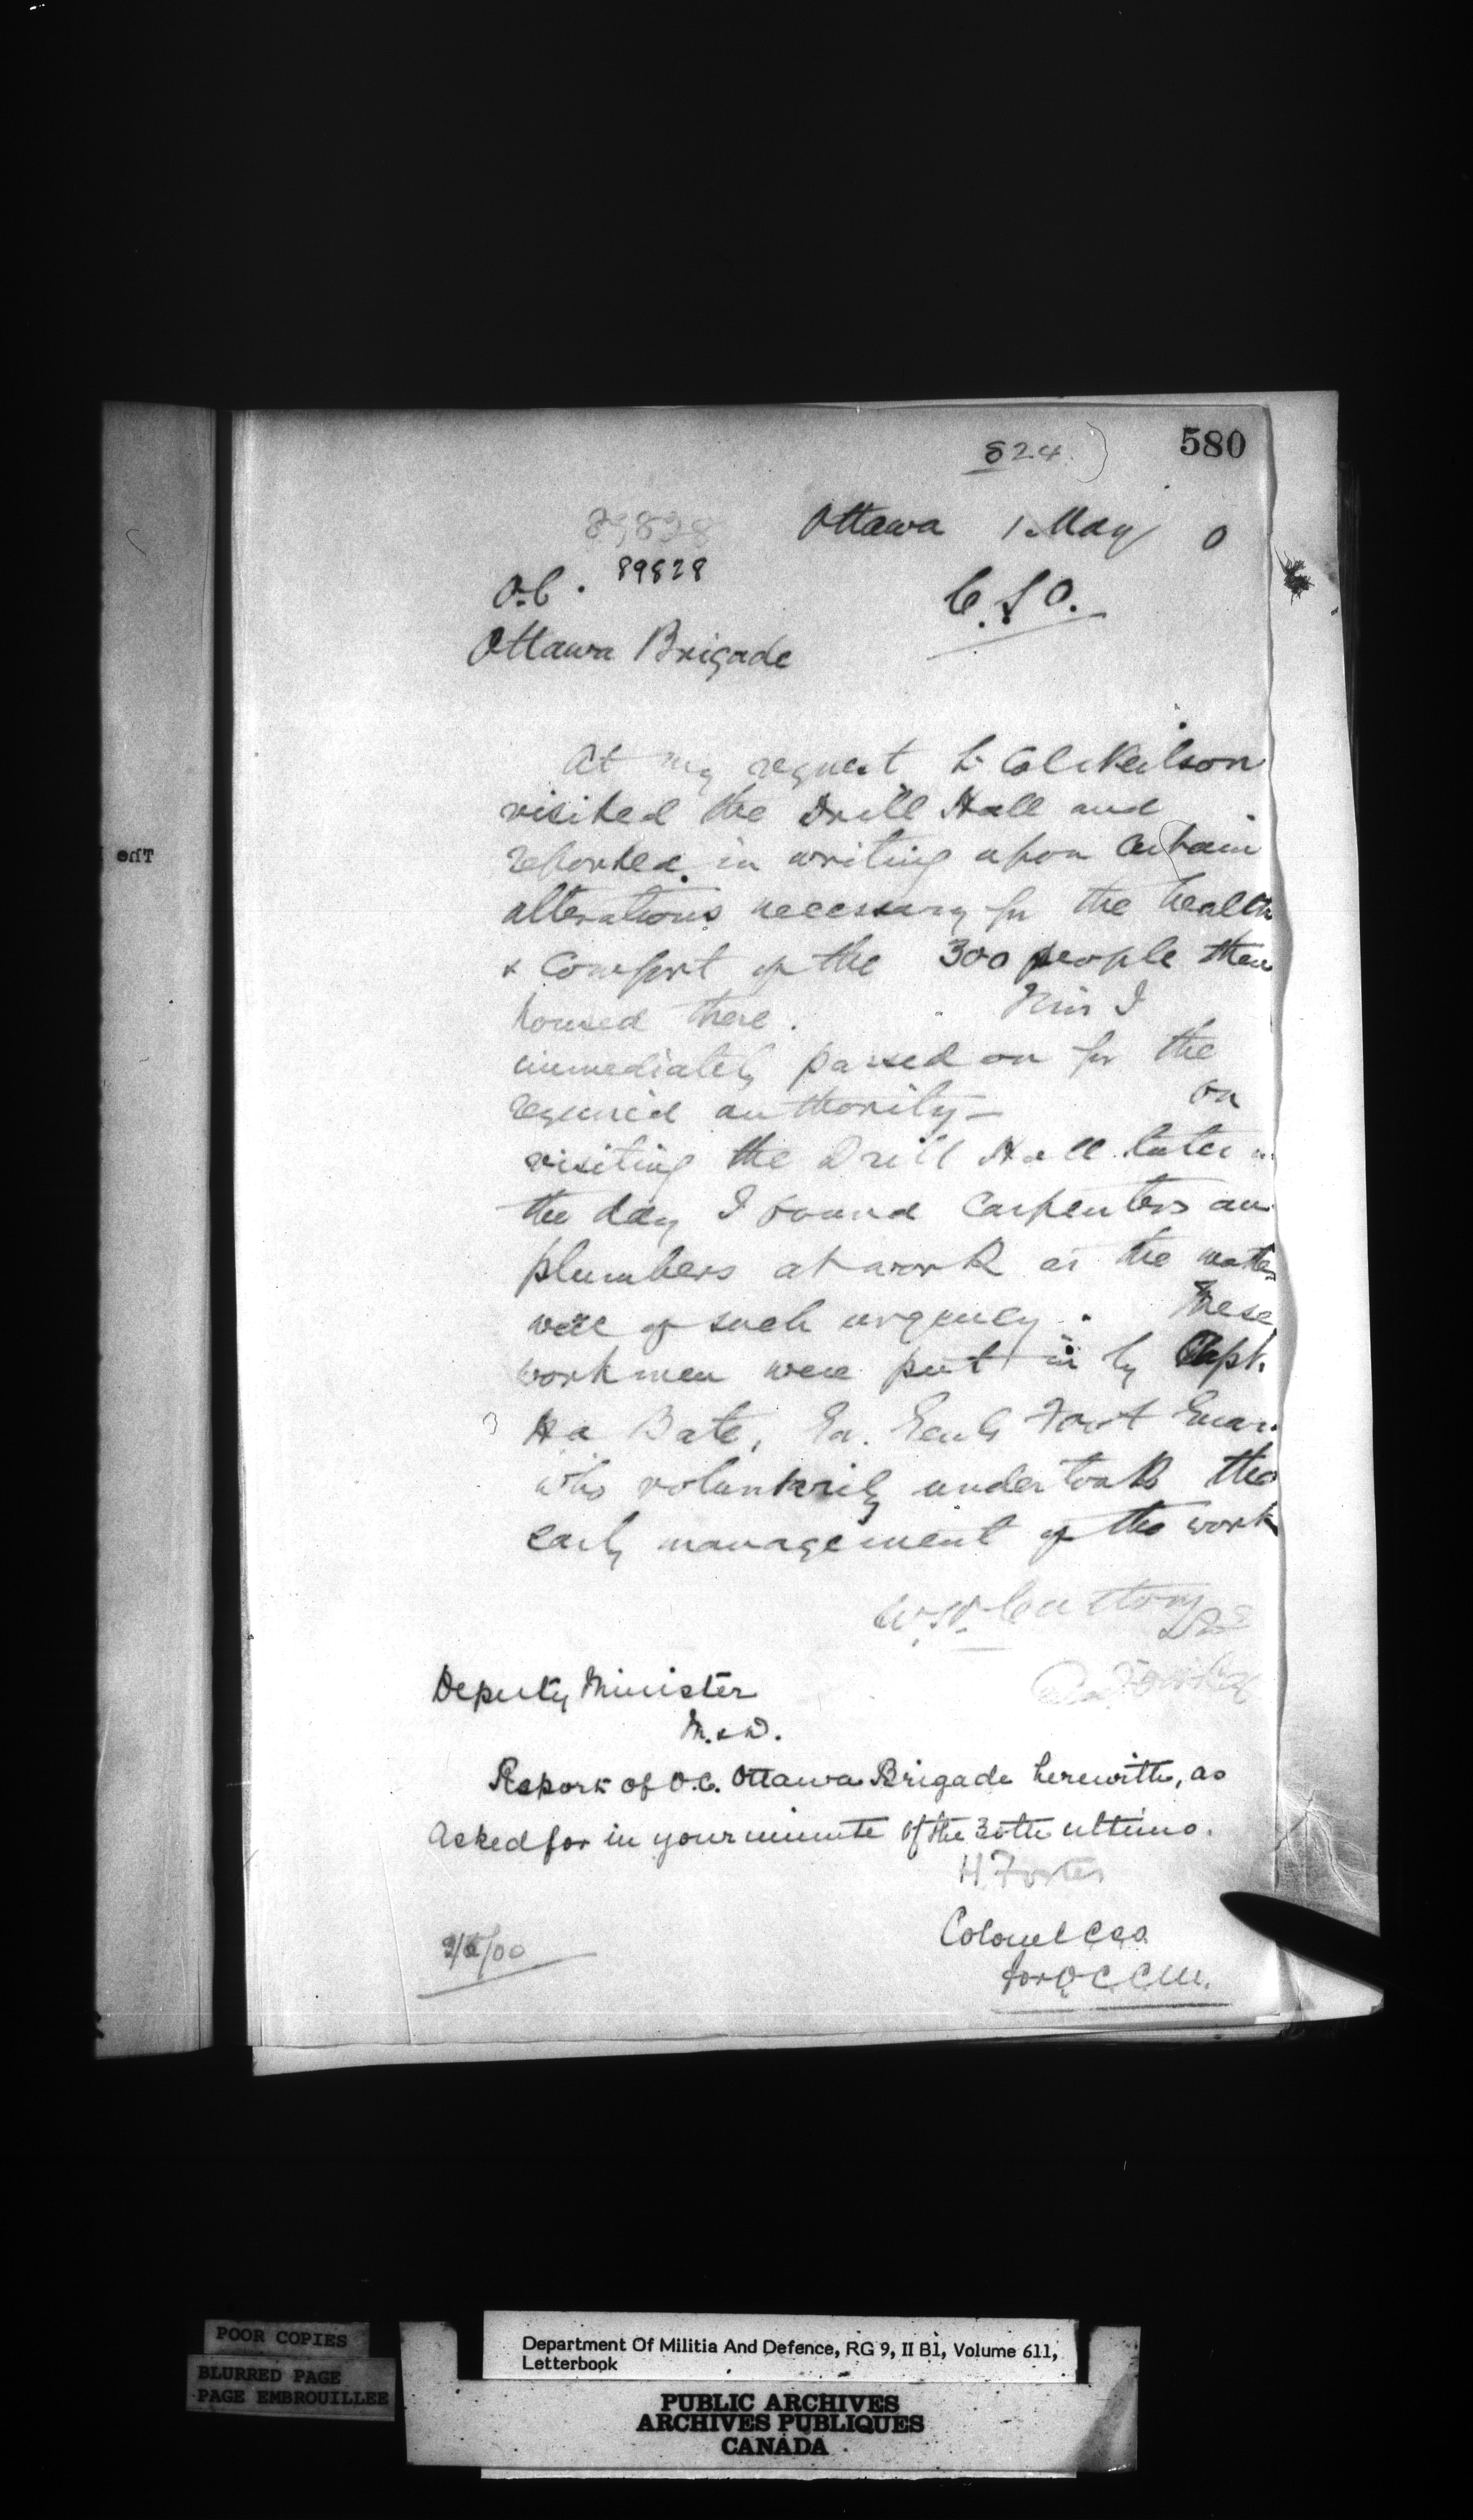 580
824
Ottawa 1 May 0
89828
89828
O.C.
C.S.O.
Ottawa Brigade
At my request Lt Col Neilson
visited the Drill Hall and
reported in writing upon certain
alterations necessary for the health
& comfort of the 300 people then
housed there. This I
immediately passed on for the
required authority— On
visiting the Drill Hall later in
the day I found carpenters an
plumbers at work as the matte
were of such urgency. These
workmen were put in by Capt.
Bate, Foot Guar
who voluntarily undertook the
early management of the work
Deputy Minister
M. & D.
Report of O.C. Ottawa Brigade herewith, as
asked for in your minute of the 30th ultimo.
H Foster
Colonel CSO
for O C C M.
2/5/00
The
POOR COPIES
BLURRED PAGE
PAGE EMBROUILLEE
Department Of Militia And Defence, RG 9, II B1, Volume 611,
Letterbook
PUBLIC ARCHIVES
ARCHIVES PUBLIQUES
CANADA